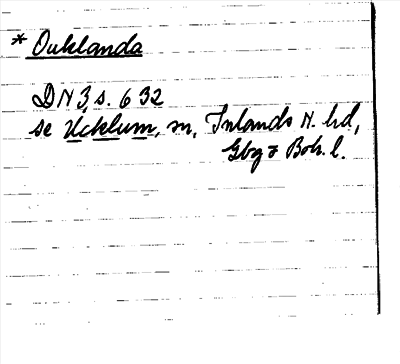 * Ouklanda
DN 3, s. 632
se Ucklum, sn, Inlands N. hd,
Gbg o Boh. l.